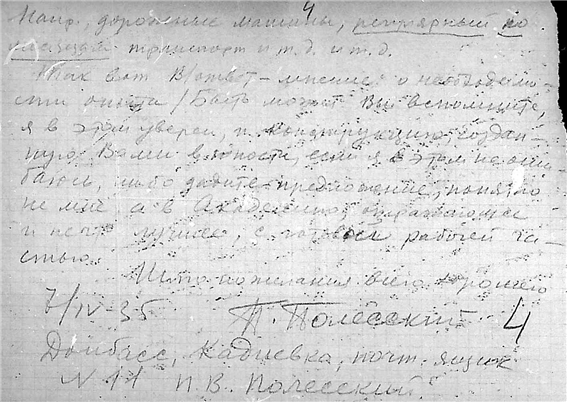 4
Напр, дорожные машины, регулярный по
транспорт и т.д. и т.д.
Так вот В/ответ – мнение о необходимо-
сти опыта / Быть может Вы вспомните,
я в этом уверен, и конструкцию, создан-
ную Вами в юности, если я в этом не оши-
баюсь, либо дадите предложение, понятно
не мне а в Академию,
и нет лучше, с рабочей ча-
стью.
пожелания всего хорошего
7/IV-35 П. Полесский 4
Донбасс, Кадиевка, почт. ящик
N 11 П. В. Полесский.